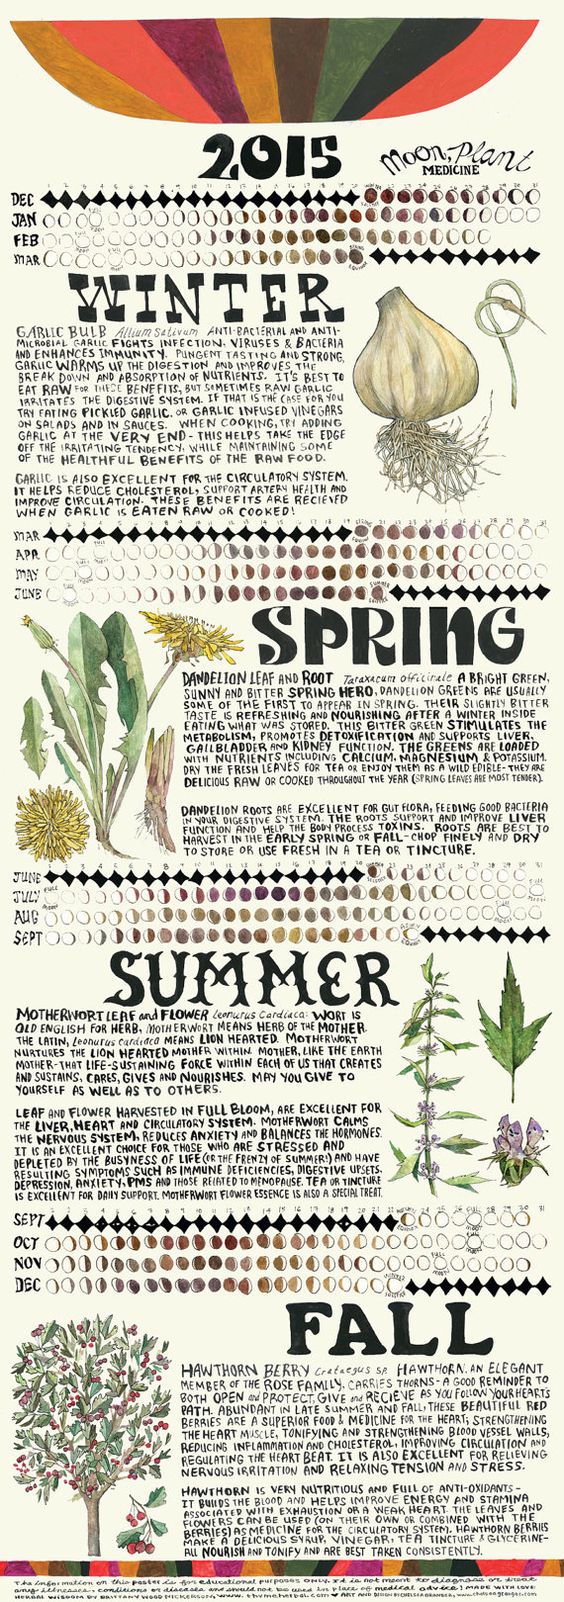 2015
Moon, Plant
MEDICINE
1 2 3 4 5 6 7 8 9 10 11 12 13 14 15 16 17 18 19 20 21 22 23 24 25 26 27 28 29 30 31
DEC
JAN
FEB
MAR
WINTER
GARLIC BULB Allium Sativum ANTI-BACTERIAL AND ANTI-
MICROBIAL GARLIC FIGHTS INFECTION, VIRUSES & BACTERIA
AND ENHANCES IMMUNITY. PUNGENT TASTING AND STRONG,
GARLIC WARMS UP THE DIGESTION AND IMPROVES THE
BREAK DOWN AND ABSORPTION OF NUTRIENTS. IT'S BEST TO
EAT RAW FOR THESE BENEFITS, BUT SOMETIMES RAW GARLIC
IRRITATES THE DIGESTIVE SYSTEM. IF THAT IS THE CASE FOR YOU
TRY EATING PICKLED GARLIC, OR GARLIC INFUSED VINEGARS
ON SALADS AND IN SAUCES. WHEN COOKING, TRY ADDING
GARLIC AT THE VERY END - THIS HELPS TAKE THE EDGE
OFF THE IRRITATING TENDENCY, WHILE MAINTAINING SOME
OF THE HEALTHFUL BENEFITS OF THE RAW FOOD.
GARLIC IS ALSO EXCELLENT FOR THE CIRCULATORY SYSTEM.
IT HELPS REDUCE CHOLESTEROL, SUPPORT ARTERY HEALTH AND
IMPROVE CIRCULATION. THESE BENEFITS ARE RECIEVED
WHEN GARLIC IS EATEN RAW OR COOKED!
MAR
APR
MAY
JUNE
SUMMER
SOLSTICE
SPRING
DANDELION LEAF AND ROOT Taraxacum officinale A BRIGHT GREEN,
SUNNY AND BITTER SPRING HERO, DANDELION GREENS ARE USUALLY
SOME OF THE FIRST TO APPEAR IN SPRING. THEIR SLIGHTLY BITTER
TASTE IS REFRESHING AND NOURISHING AFTER A WINTER INSIDE
EATING WHAT WAS STORED. THIS BITTER GREEN STIMULATES THE
METABOLISM, PROMOTES DETOXIFICATION AND SUPPORTS LIVER,
GALLBLADDER AND KIDNEY FUNCTION. THE GREENS ARE LOADED
WITH NUTRIENTS INCLUDING CALCIUM, MAGNESIUM & POTASSIUM.
DRY THE FRESH LEAVES FOR TEA OR ENJOY THEM AS A WILD EDIBLE - THEY ARE
DELICIOUS RAW OR COOKED THROUGHOUT THE YEAR (SPRING LEAVES ARE MOST TENDER).
DANDELION ROOTS ARE EXCELLENT FOR GUT FLORA, FEEDING GOOD BACTERIA
IN YOUR DIGESTIVE SYSTEM. THE ROOTS SUPPORT AND IMPROVE LIVER
FUNCTION AND HELP THE BODY PROCESS TOXINS. ROOTS ARE BEST TO
HARVEST IN THE EARLY SPRING OR FALL - CHOP FINELY AND DRY
TO STORE OR USE FRESH IN A TEA OR TINCTURE.
JUNE
JULY
AUG
SEPT
SUMMER
MOTHERWORT LEAF and FLOWER Leonurus Cardiaca: WORT IS
OLD ENGLISH FOR HERB, MOTHERWORT MEANS HERB OF THE MOTHER.
THE LATIN, Leonurus cardiaca MEANS LION HEARTED. MOTHERWORT
NURTURES THE LION HEARTED MOTHER WITHIN. MOTHER, LIKE THE EARTH
MOTHER - THAT LIFE-SUSTAINING FORCE WITHIN EACH OF US THAT CREATES
AND SUSTAINS, CARES, GIVES AND NOURISHES. MAY YOU GIVE TO
YOURSELF AS WELL AS TO OTHERS.
LEAF AND FLOWER HARVESTED IN FULL BLOOM, ARE EXCELLENT FOR
THE LIVER, HEART AND CIRCULATORY SYSTEM. MOTHERWORT CALMS
THE NERVOUS SYSTEM, REDUCES ANXIETY AND BALANCES THE HORMONES.
IT IS AN EXCELLENT CHOICE FOR THOSE WHO ARE STRESSED AND
DEPLETED BY THE BUSYNESS OF LIFE (OR THE FRENZY OF SUMMER!) AND HAVE
RESULTING SYMPTOMS SUCH AS IMMUNE DEFICIENCIES, DIGESTIVE UPSETS,
DEPRESSION, ANXIETY, PMS AND THOSE RELATED TO MENOPAUSE. TEA OR TINCTURE
IS EXCELLENT FOR DAILY SUPPORT. MOTHERWORT FLOWER ESSENCE IS ALSO A SPECIAL TREAT.
SEPT
OCT
NOV
DEC
FALL
HAWTHORN BERRY Crataegus sp. HAWTHORN, AN ELEGANT
MEMBER OF THE ROSE FAMILY, CARRIES THORNS - A GOOD REMINDER TO
BOTH OPEN and PROTECT, GIVE and RECIEVE AS YOU FOLLOW YOUR HEART'S
PATH. ABUNDANT IN LATE SUMMER AND FALL, THESE BEAUTIFUL RED
BERRIES ARE A SUPERIOR FOOD & MEDICINE FOR THE HEART; STRENGTHENING
THE HEART MUSCLE, TONIFYING AND STRENGTHENING BLOOD VESSEL WALLS,
REDUCING INFLAMMATION AND CHOLESTEROL, IMPROVING CIRCULATION AND
REGULATING THE HEART BEAT. IT IS ALSO EXCELLENT FOR RELIEVING
NERVOUS IRRITATION AND RELAXING TENSION AND STRESS.
HAWTHORN IS VERY NUTRITIOUS AND FULL OF ANTI-OXIDANTS -
IT BUILDS THE BLOOD AND HELPS IMPROVE ENERGY AND STAMINA
ASSOCIATED WITH EXHAUSTION OR A WEAK HEART. THE LEAVES AND
FLOWERS CAN BE USED (ON THEIR OWN OR COMBINED WITH THE
BERRIES) AS MEDICINE FOR THE CIRCULATORY SYSTEM. HAWTHORN BERRIES
MAKE A DELICIOUS SYRUP, VINEGAR, TEA TINCTURE & GLYCERINE -
ALL NOURISH AND TONIFY AND ARE BEST TAKEN CONSISTENTLY.
The information on this poster is for educational purposes ONLY. It is not meant to diagnose or treat
any illnesses, conditions or diseases and should not be used in place of medical advice! MADE WITH LOVE
HERBAL WISDOM BY BRITTANY WOOD NICKERSON, www.thymeherbal.com ART AND DESIGN BY CHELSEA GRANGER, www.chelseagranger.com